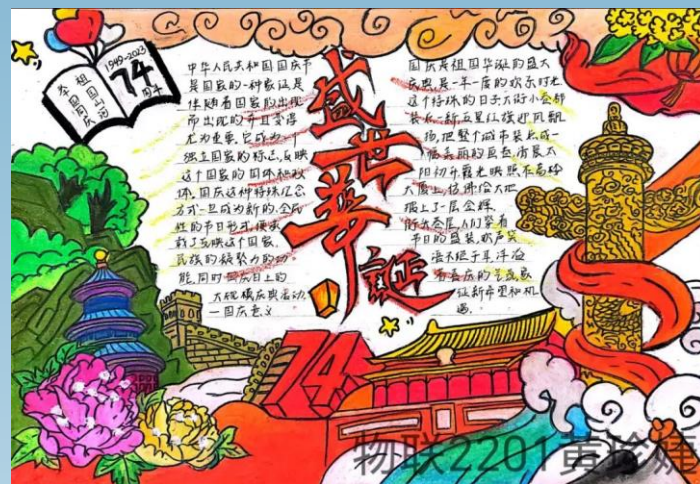 1949-2023
74
周年
祖国山河
举国同庆
盛世华诞
中华人民共和国国庆节
是国家的一种象征是
伴随着国家的出现
而出现的并且变得
尤为重要。它成为一个
独立国家的标志,反映
这个国家的国体和政
体。国庆这种特殊纪念
方式一旦成为新的、全民
性的节日形式,便承
载了反映这个国家、
民族的凝聚力的功
能,同时国庆日上的
大规模庆典活动,
一国庆意义
国庆是祖国华诞的盛大
庆典,是一年一度的欢乐时光
这个特殊的日子大街小巷都
装
新五星红旗迎风飘
扬,把整个城市装点成一
幅美丽的画卷清晨太
阳初升霞光映照在高楼
大厦上,仿佛给大地
披上了一层金辉.
街头巷尾,人们穿着
节日的盛装,欢声笑
语不绝于耳洋溢
着喜庆的气氛象
征新希望和机
遇。
74
物联2201黄珍婕